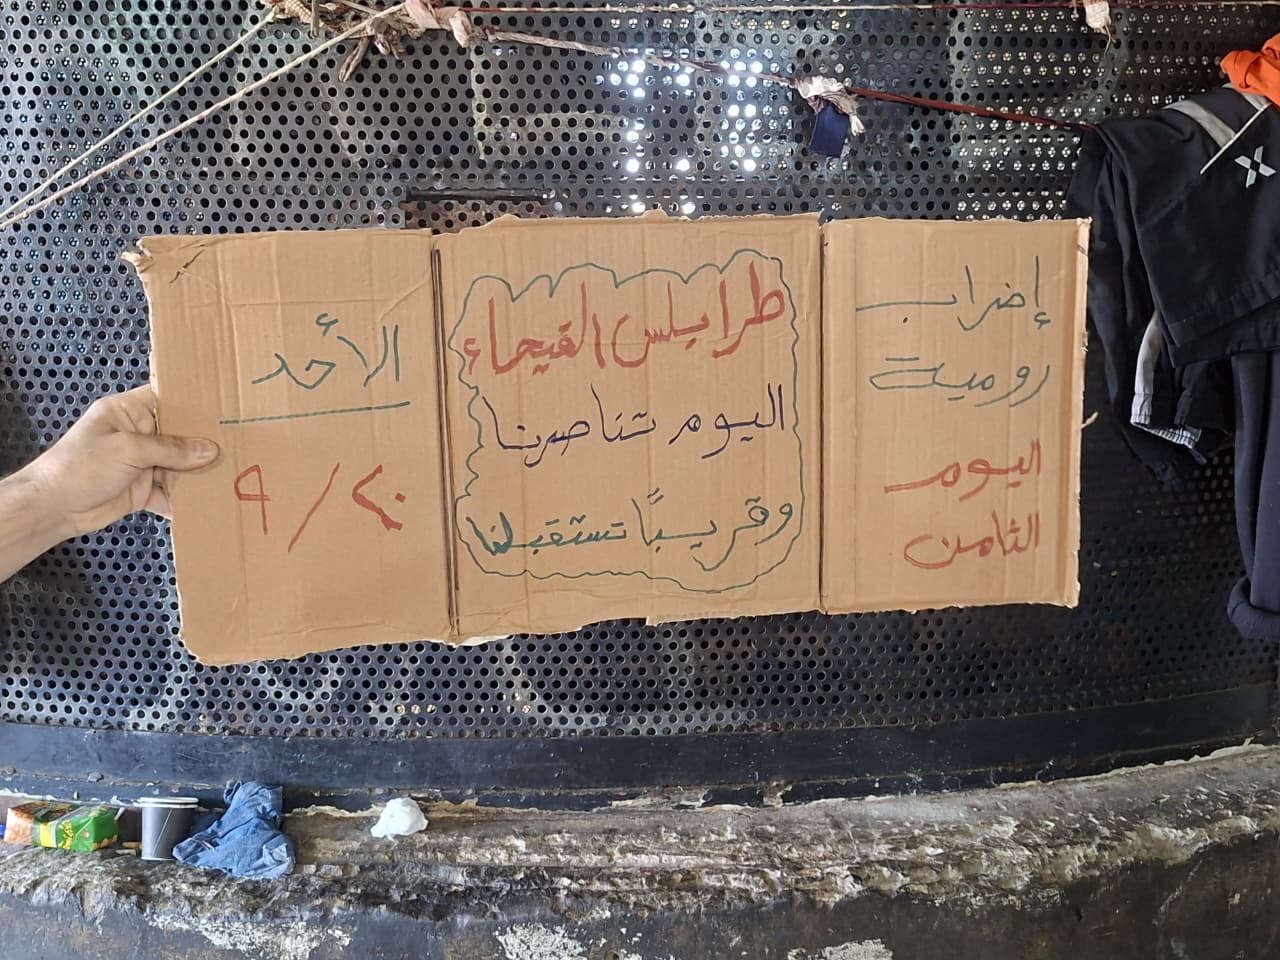 إضراب
رومية
اليوم
الثامن
طرابلس الفيحاء
اليوم تناصرنا
وقريباً تستقبلنا
الأحد
٢٠/٩